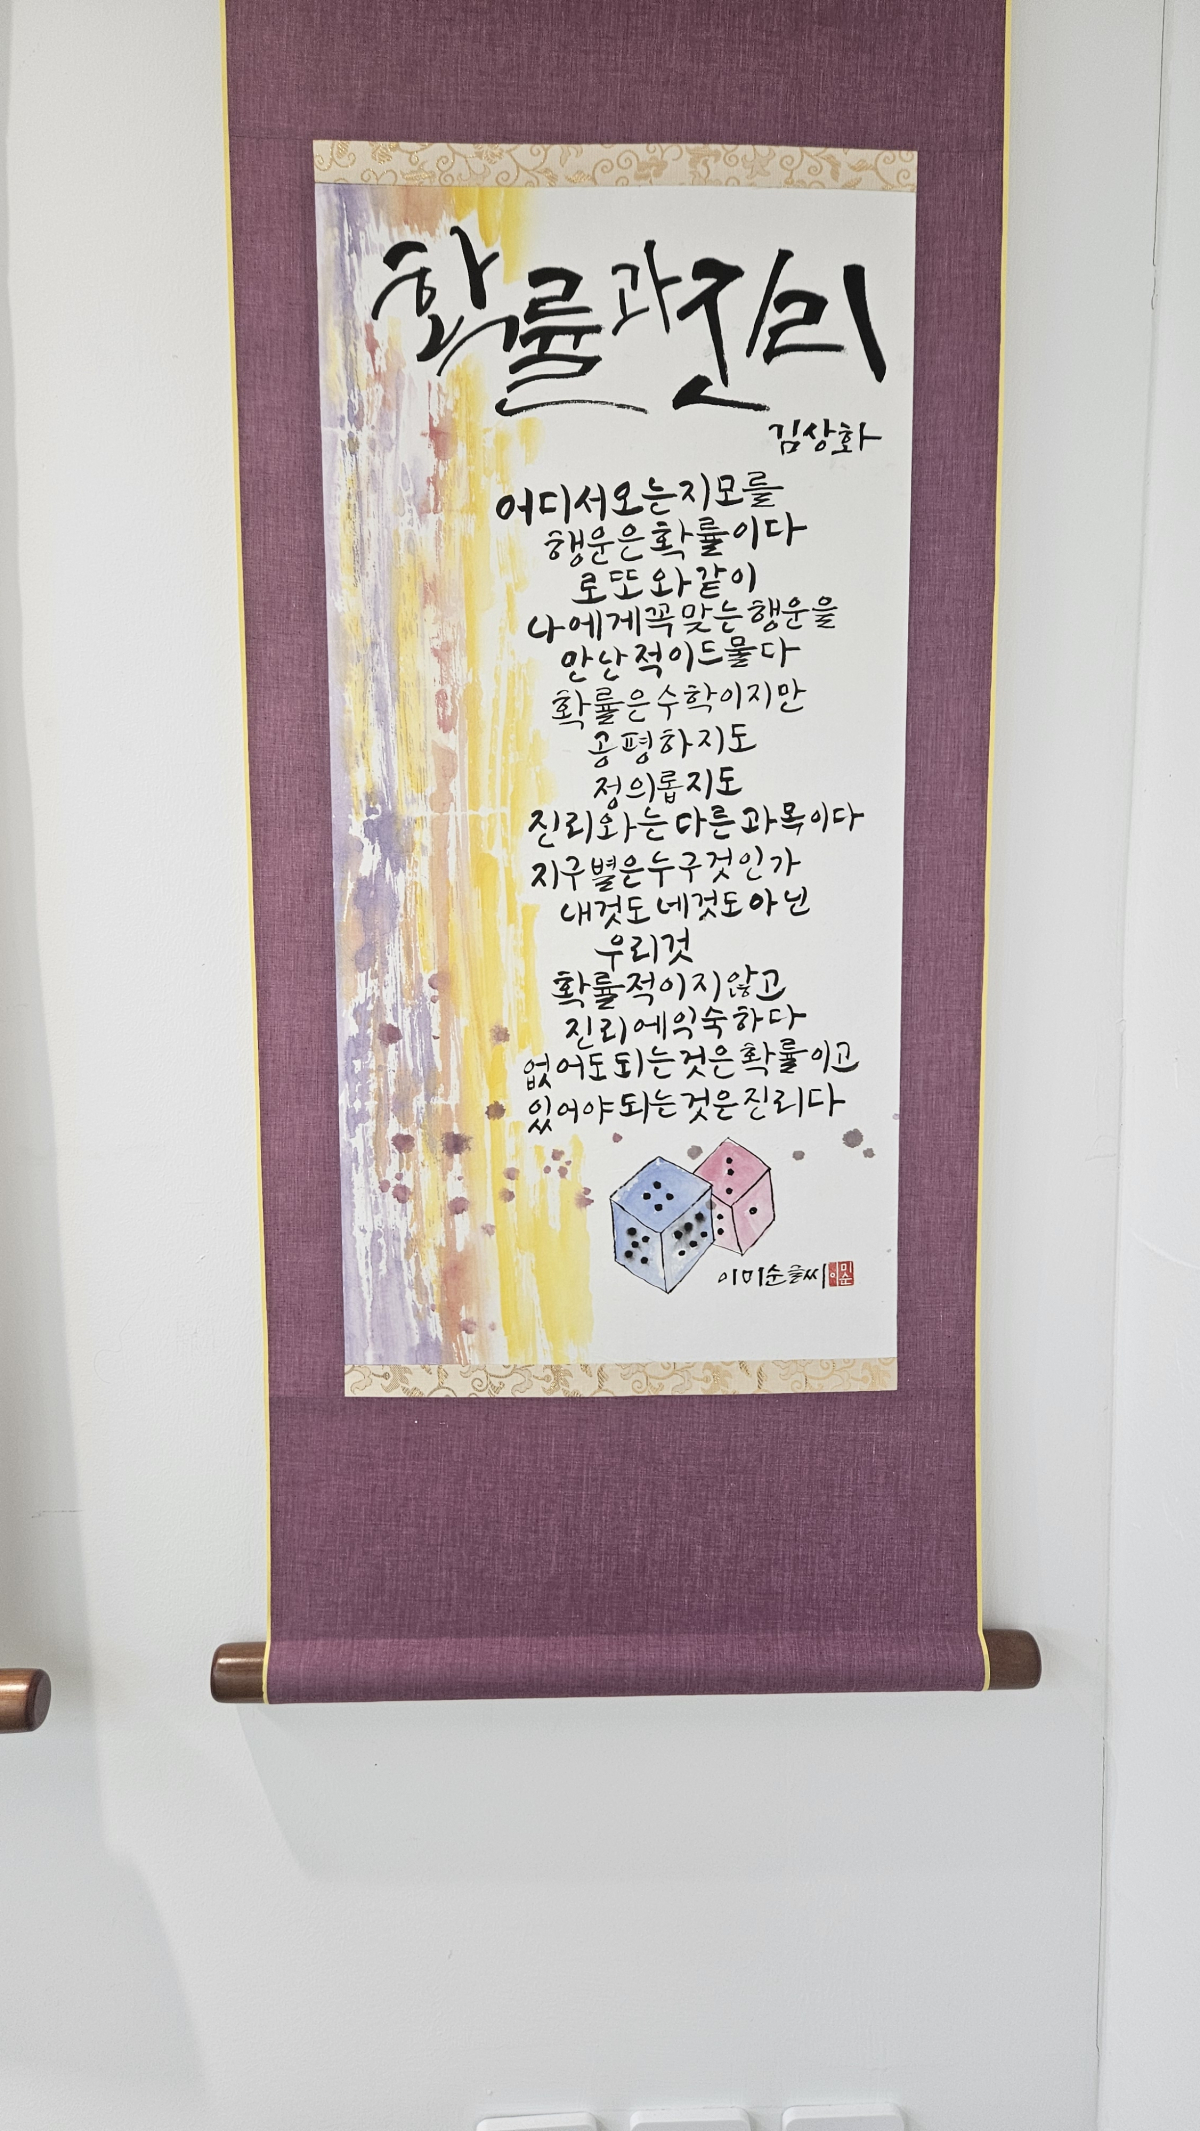 확률과 진리
김상화
어디서 오는지 모를
행운은 확률이다
로또와 같이
나에게 꼭 맞는 행운을
만난 적이 드물다
확률은 수학이지만
공평하지도
정의롭지도
진리와는 다른 과목이다
지구별은 누구 것인가
내 것도 네 것도 아닌
우리 것
확률적이지 않고
진리에 익숙하다
없어도 되는 것은 확률이고
있어야 되는 것은 진리다
이미순 글씨
이미순